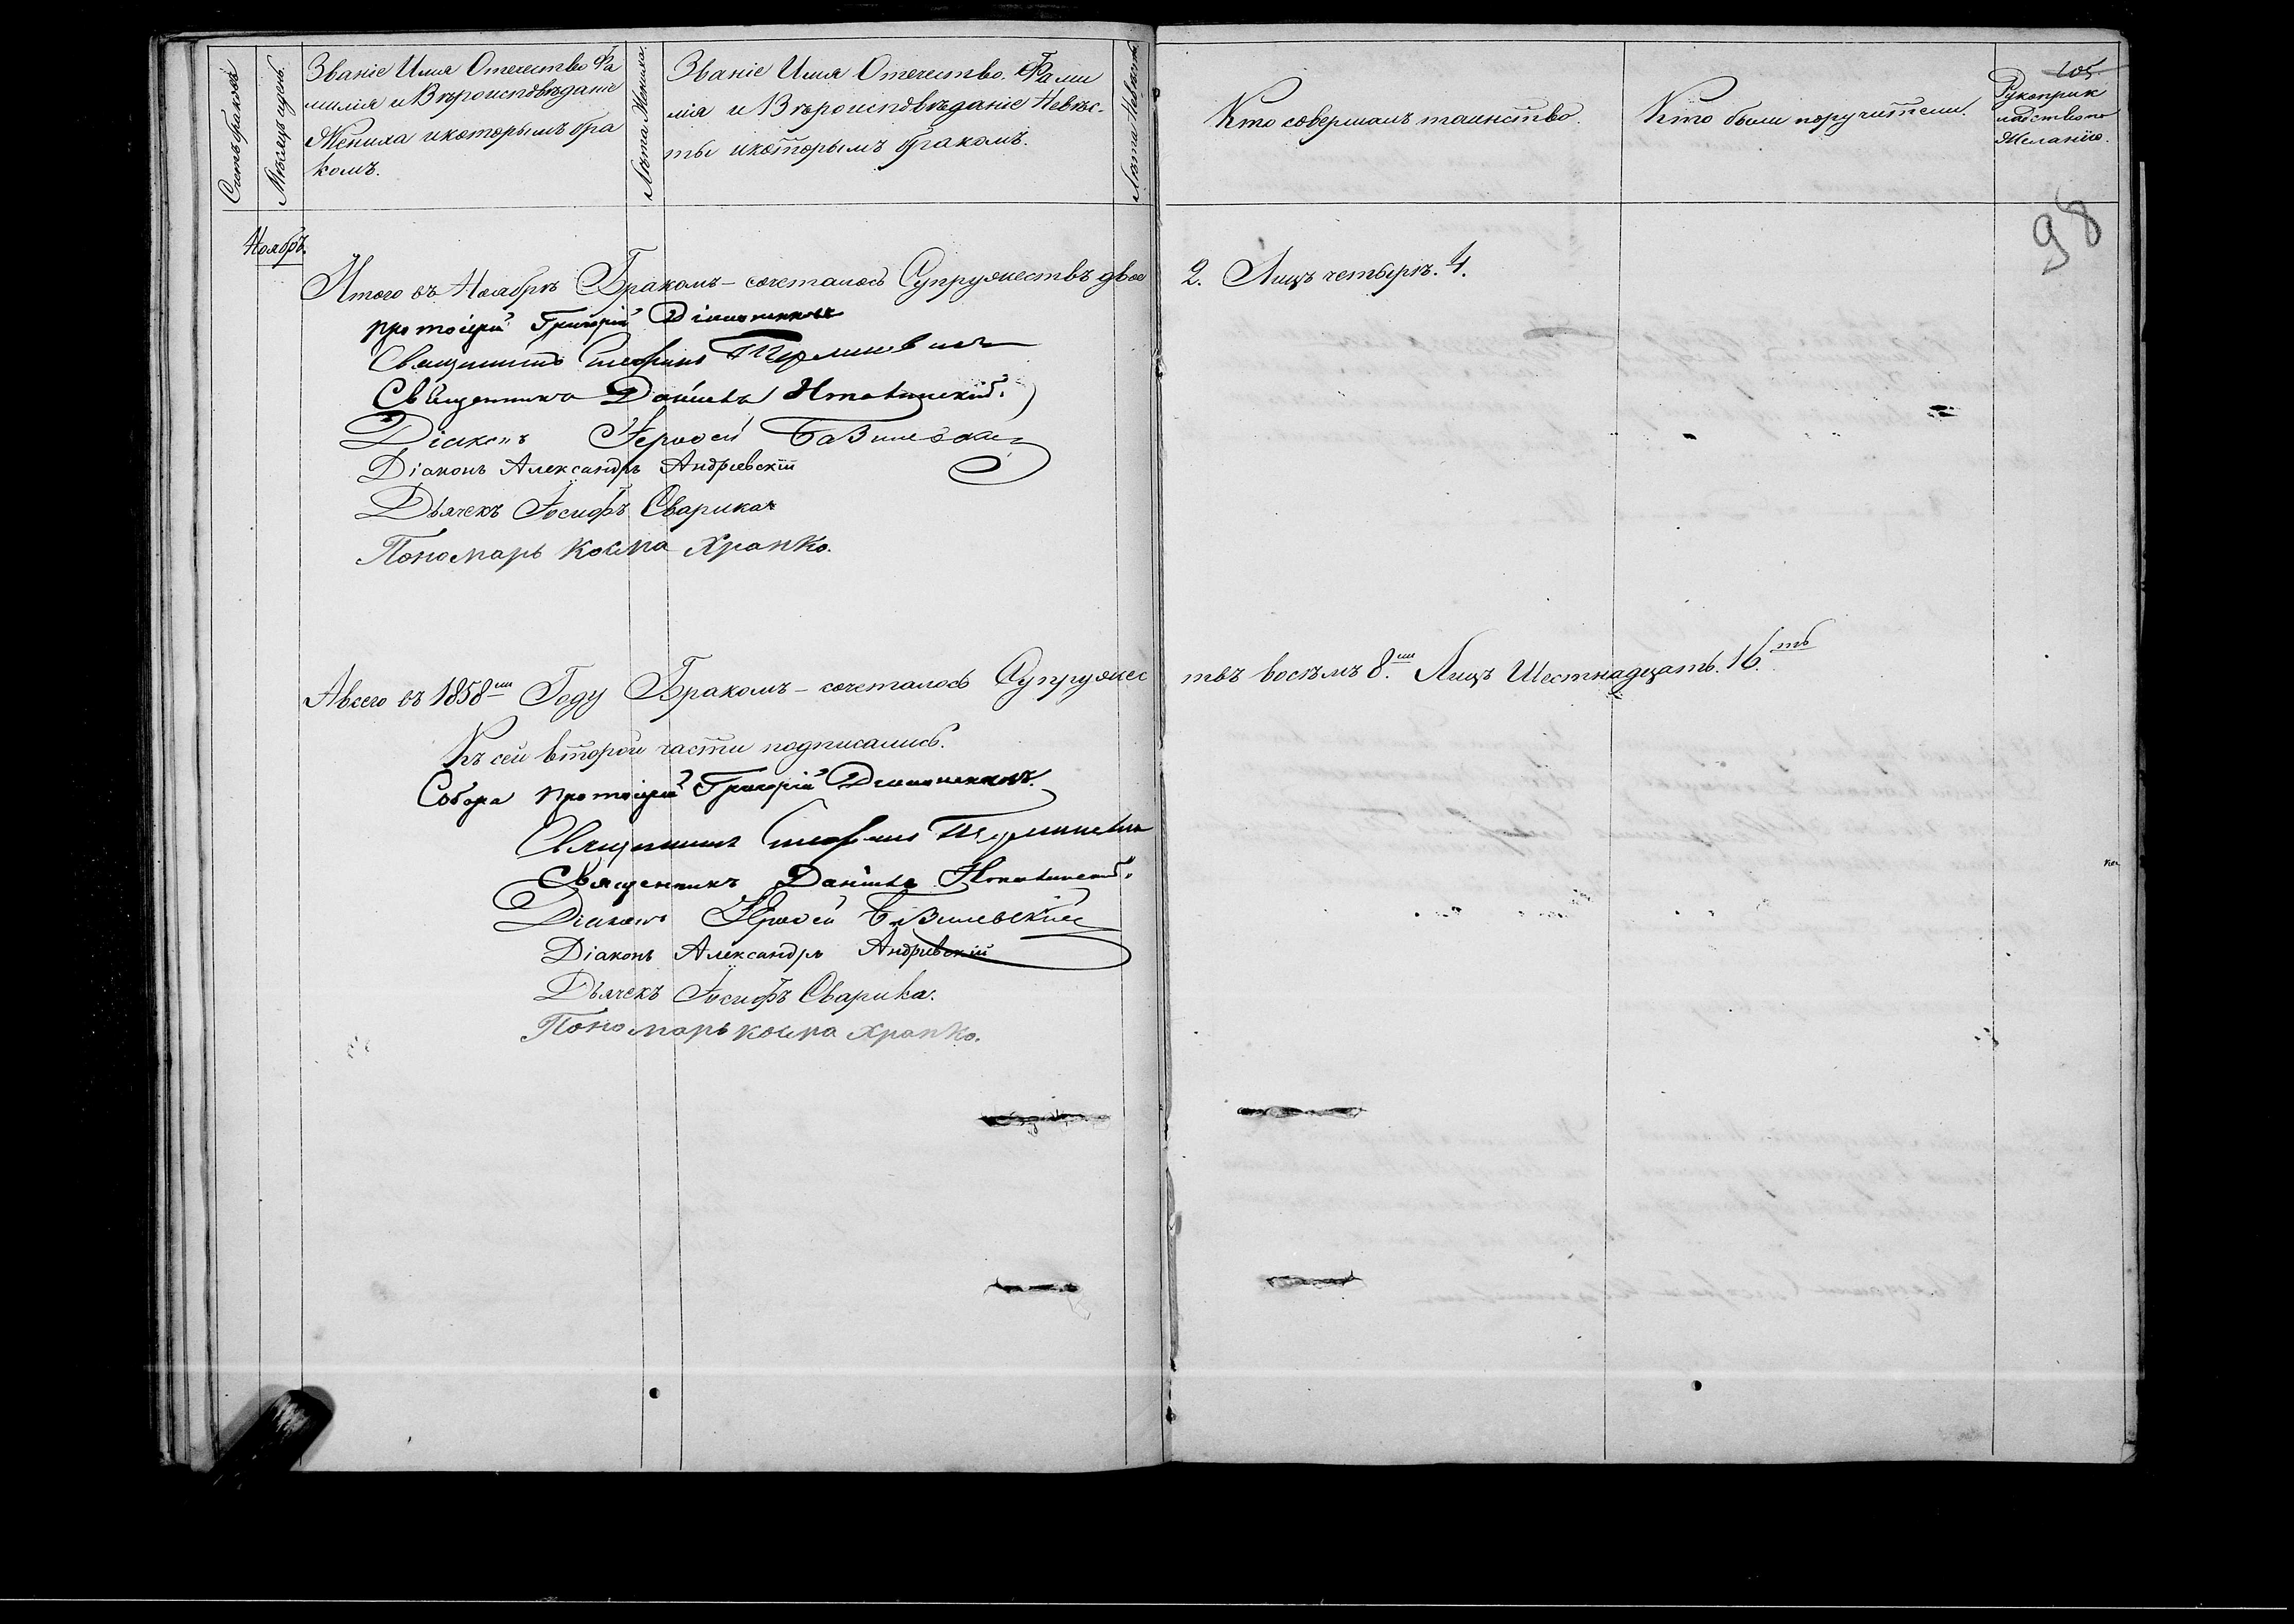 Счетъ браковъ
Мѣсяцъ и день.
Званіе Имя Отечество Фа
милія и Вѣроисповѣданіе
Жениха и которымъ бра
комъ.
Лѣта Жениха.
Званіе Имя Отечество. Фами
лія и Вѣроисповѣданіе Невѣс-
ты и которымъ бракомъ.
Лѣта Невѣсты
Кто совершалъ таинство.
Кто были поручители.
105.
Рукоприк
ладство по
Желанію.
98
Ноябрь.
Итого въ Ноябрѣ Бракомъ - сочеталось Супружествъ двое 2. Лицъ четыре. 4.
Протоіерей Григорій
Священникъ Стефанъ
Священникъ Даніилъ
Діаконъ Іерофей Базилевскій
Діаконъ Александръ Андріевскій
Дьячекъ Іосифъ Сварика
Пономарь Косма Храпко.
А всего въ 1858мъ Году Бракомъ - сочеталось Супружес твъ восѣмъ 8.мъ Лицъ Шестнадцать. 16.ть
Къ сей второй части подписались.
Собора Протоіерей Григорій
Священникъ Стефанъ
Священникъ Даніилъ
Діаконъ Іерофей Базилевскій
Діаконъ Александръ Андріевскій
Дьячекъ Іосифъ Сварика.
Пономарь Косма Храпко.